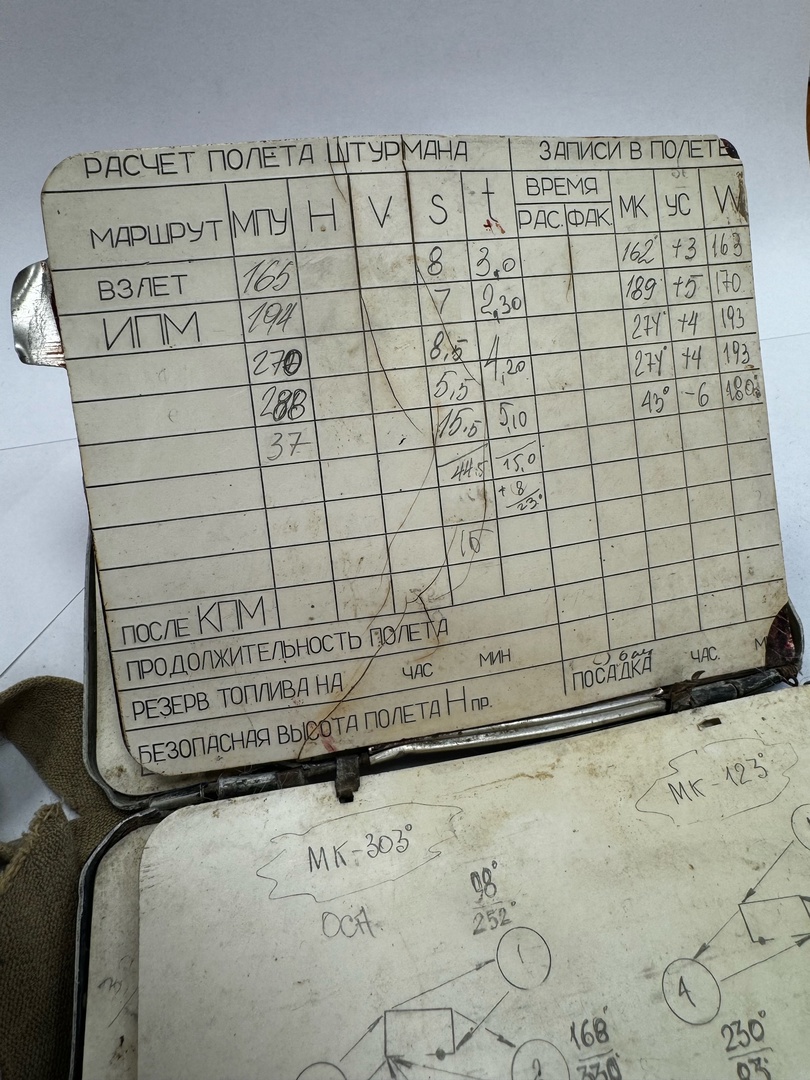 РАСЧЕТ ПОЛЕТА ШТУРМАНА ЗАПИСИ В ПОЛЕТЕ
МАРШРУТ МПУ H V S t ВРЕМЯ РАС. ФАК. МК УС W
ВЗЛЕТ 165 8 3,0 162° +3 163
ИПМ 194 7 2,30 189° +5 170
270 8,5 4,20 274° +4 193
288 5,5 274° +4 193
37 15,5 5,10 43° -6 180
44,5 15,0
+8
23°
16
ПОСЛЕ КПМ
ПРОДОЛЖИТЕЛЬНОСТЬ ПОЛЕТА
РЕЗЕРВ ТОПЛИВА НА ЧАС МИН ПОСАДКА ЧАС. М
БЕЗОПАСНАЯ ВЫСОТА ПОЛЕТА Нпр.
МК-303°
МК-123°
ОСА
98°
252°
1
4
2
168°
330°
230°
93°